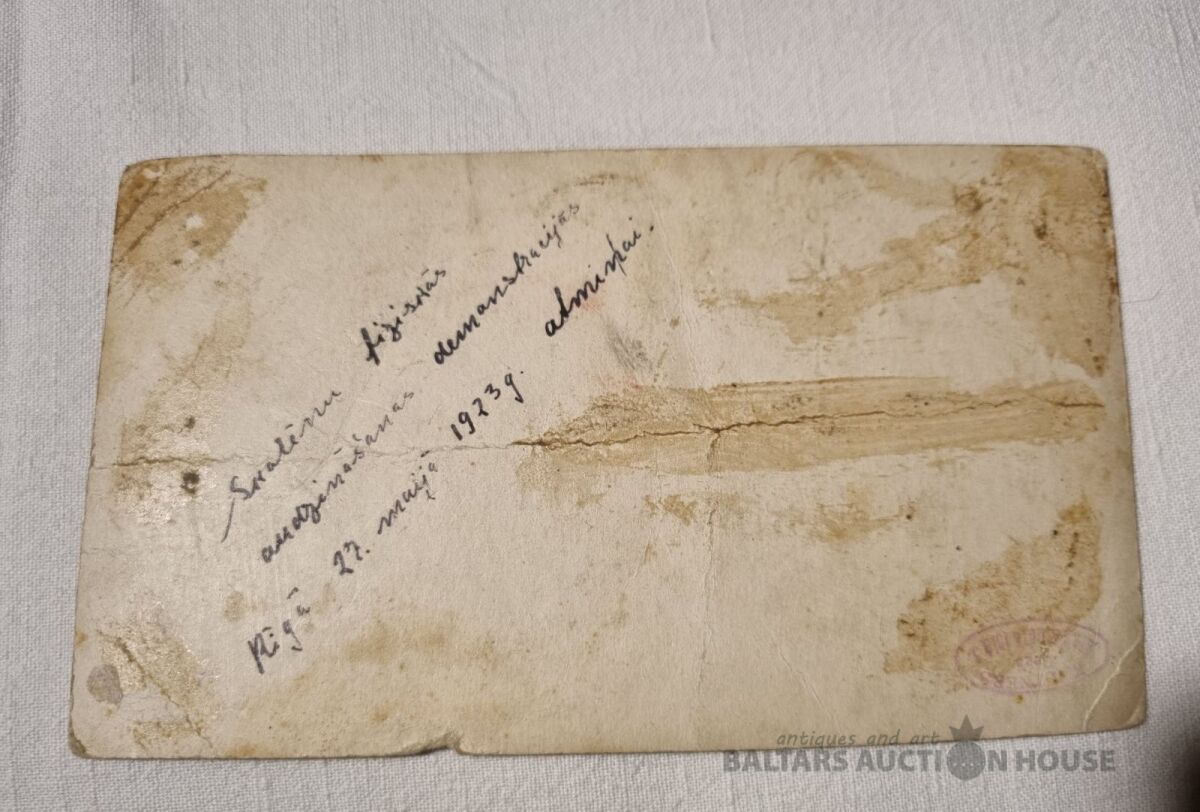 Skolēnu fiziskās
audzināšanas demonstrācijās
Rīgā 27. maijā 1923 g. atmiņai.
antiques and art
BALTARS AUCTION HOUSE